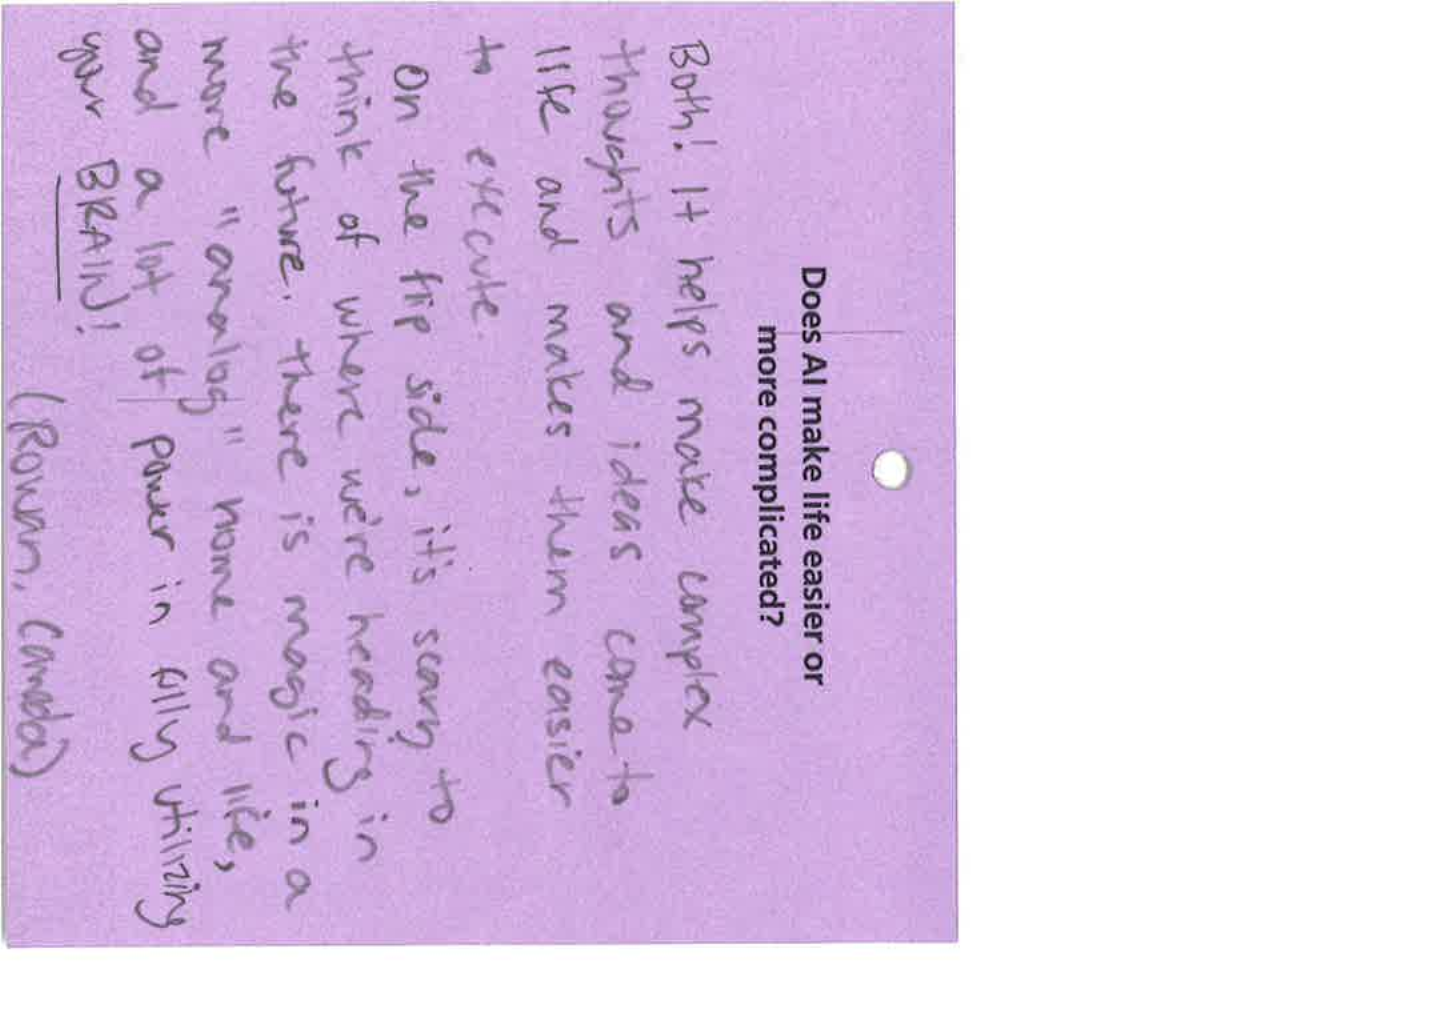 Does AI make life easier or
more complicated?
Both! It helps make complex
thoughts and ideas come to
life and makes them easier
to execute.
On the flip side, it's scary to
think of where we're heading in
the future. there is magic in a
more "analog" home and life,
and a lot of power in fully utilizing
your BRAIN!
(Rowan, Canada)